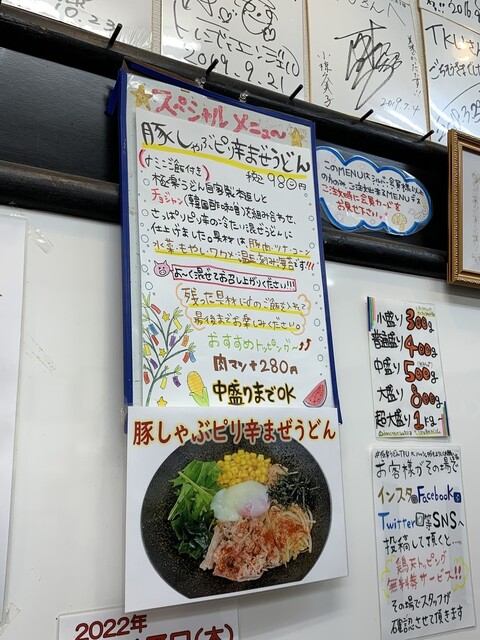 2019.9.21
小緑久美子
2019.7.4
TKUさん
スペシャルメニュー
豚しゃぶピリ辛まぜうどん
(よこご飯付き) 税込980円
極楽うどん自家製本返しと
チョジャン(韓国酢味噌)を組み合わせ、
さっぱりピリ辛の冷たい混ぜうどんに
仕上げました。具材は、豚肉・ツナ・コーン
水菜・もやし・ワカメ・温玉・刻み海苔です!!!
よ〜く混ぜてお召し上がりください!!!
残った具材にすのご飯を入れて
最後までお楽しみください。
おすすめトッピング〜♪♪
肉マシ+280円
中盛りまでOK
豚しゃぶピリ辛まぜうどん
このMENUは
ご注文時に会員カードを
お見せ下さい。
小盛り 300g
普通盛り 400g
中盛り 500g
大盛り 800g
超大盛り 1kg
お客様がその場で
インスタ Facebook
Twitter 等SNSへ
投稿して頂くと…
鶏天トッピング
無料券サービス!!
その場でスタッフが
確認させて頂きます
2022年
(木)